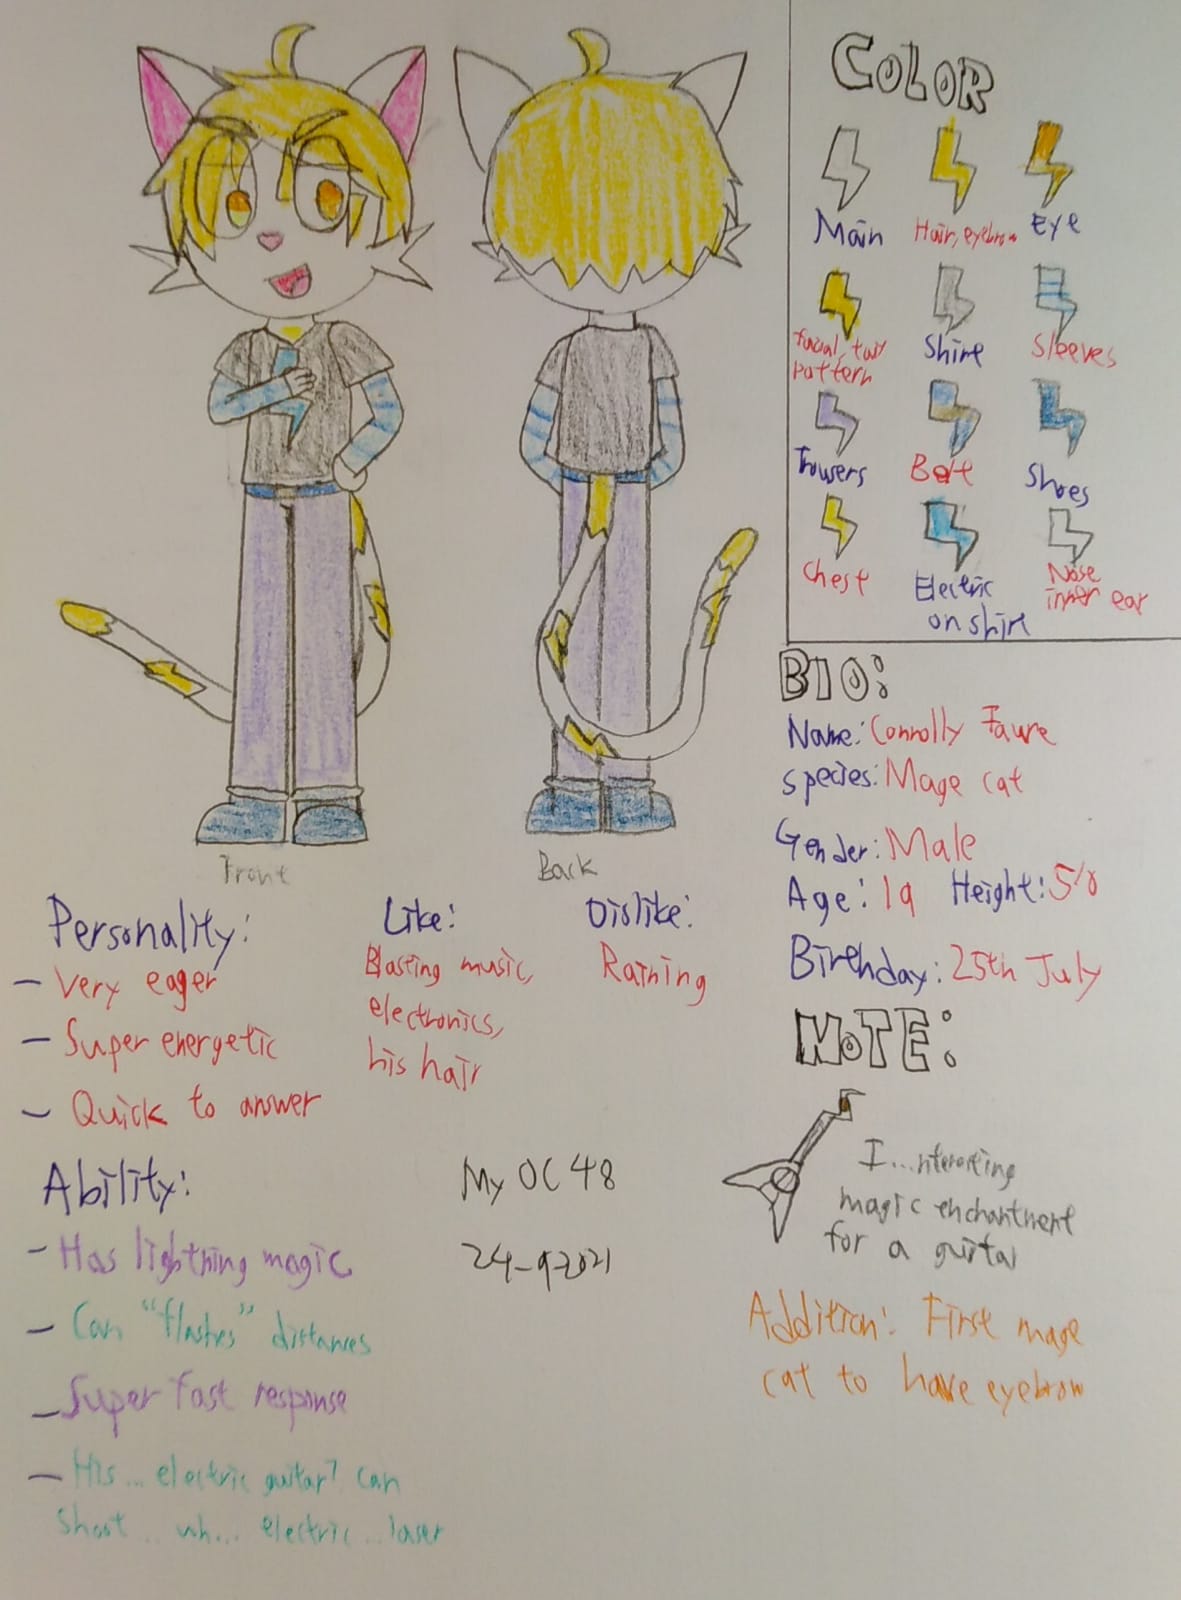 COLOR
Main
Hair, eyebrow
Eye
Facial, tail
pattern
Shirt
Sleeves
Trowers
Belt
Shoes
Chest
Electric
on shirt
Nose
inner ear
Front
Back
BIO:
Name: Connolly Faure
Species: Mage cat
Gender: Male
Age: 19 Height: 5'8
Birthday: 25th July
Personality:
- Very eager
- Super energetic
- Quick to answer
Like:
Blasting music,
electronics,
his hair
Dislike:
Raining
NOTE:
I...nteresting
magic enchantment
for a guitar
Addition: First mage
cat to have eyebrow
Ability:
- Has lightning magic
- Can "flashes" distances
- Super fast response
- His... electric guitar? can
shoot... uh... electric... laser
My OC 48
24-9-2021